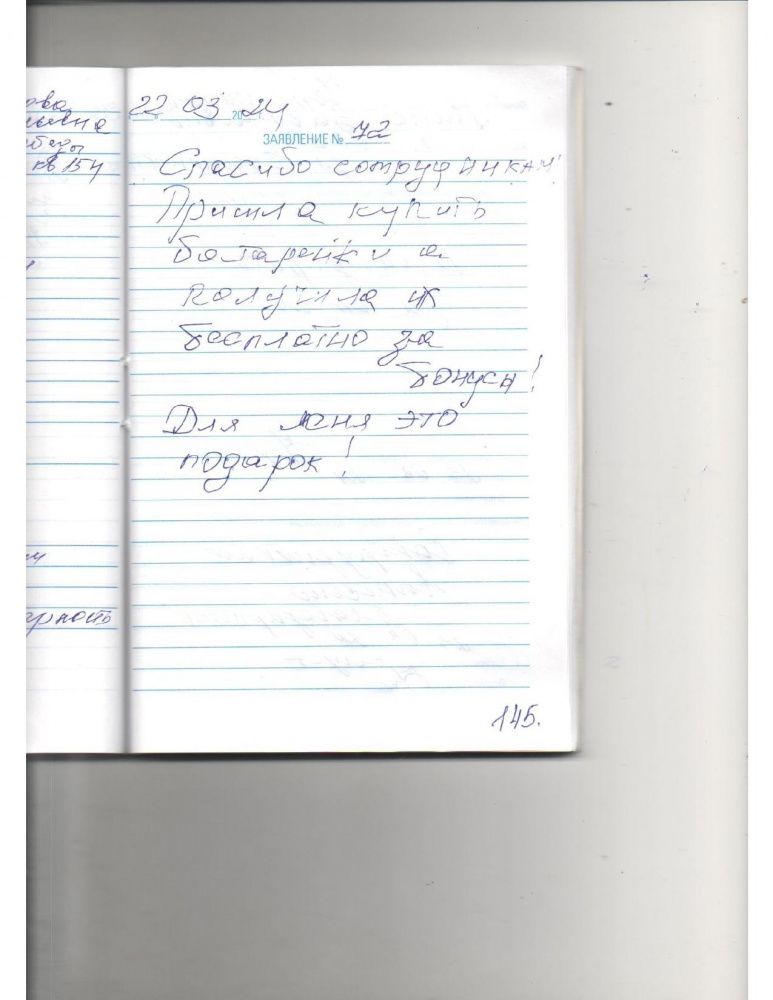 ова
овна
кв 154
рность
22 03 2024
ЗАЯВЛЕНИЕ № 72
Спасибо сотрудникам!
Пришла купить
батарейки а
получила их
бесплатно за
бонусы!
Для меня это
подарок!
145.